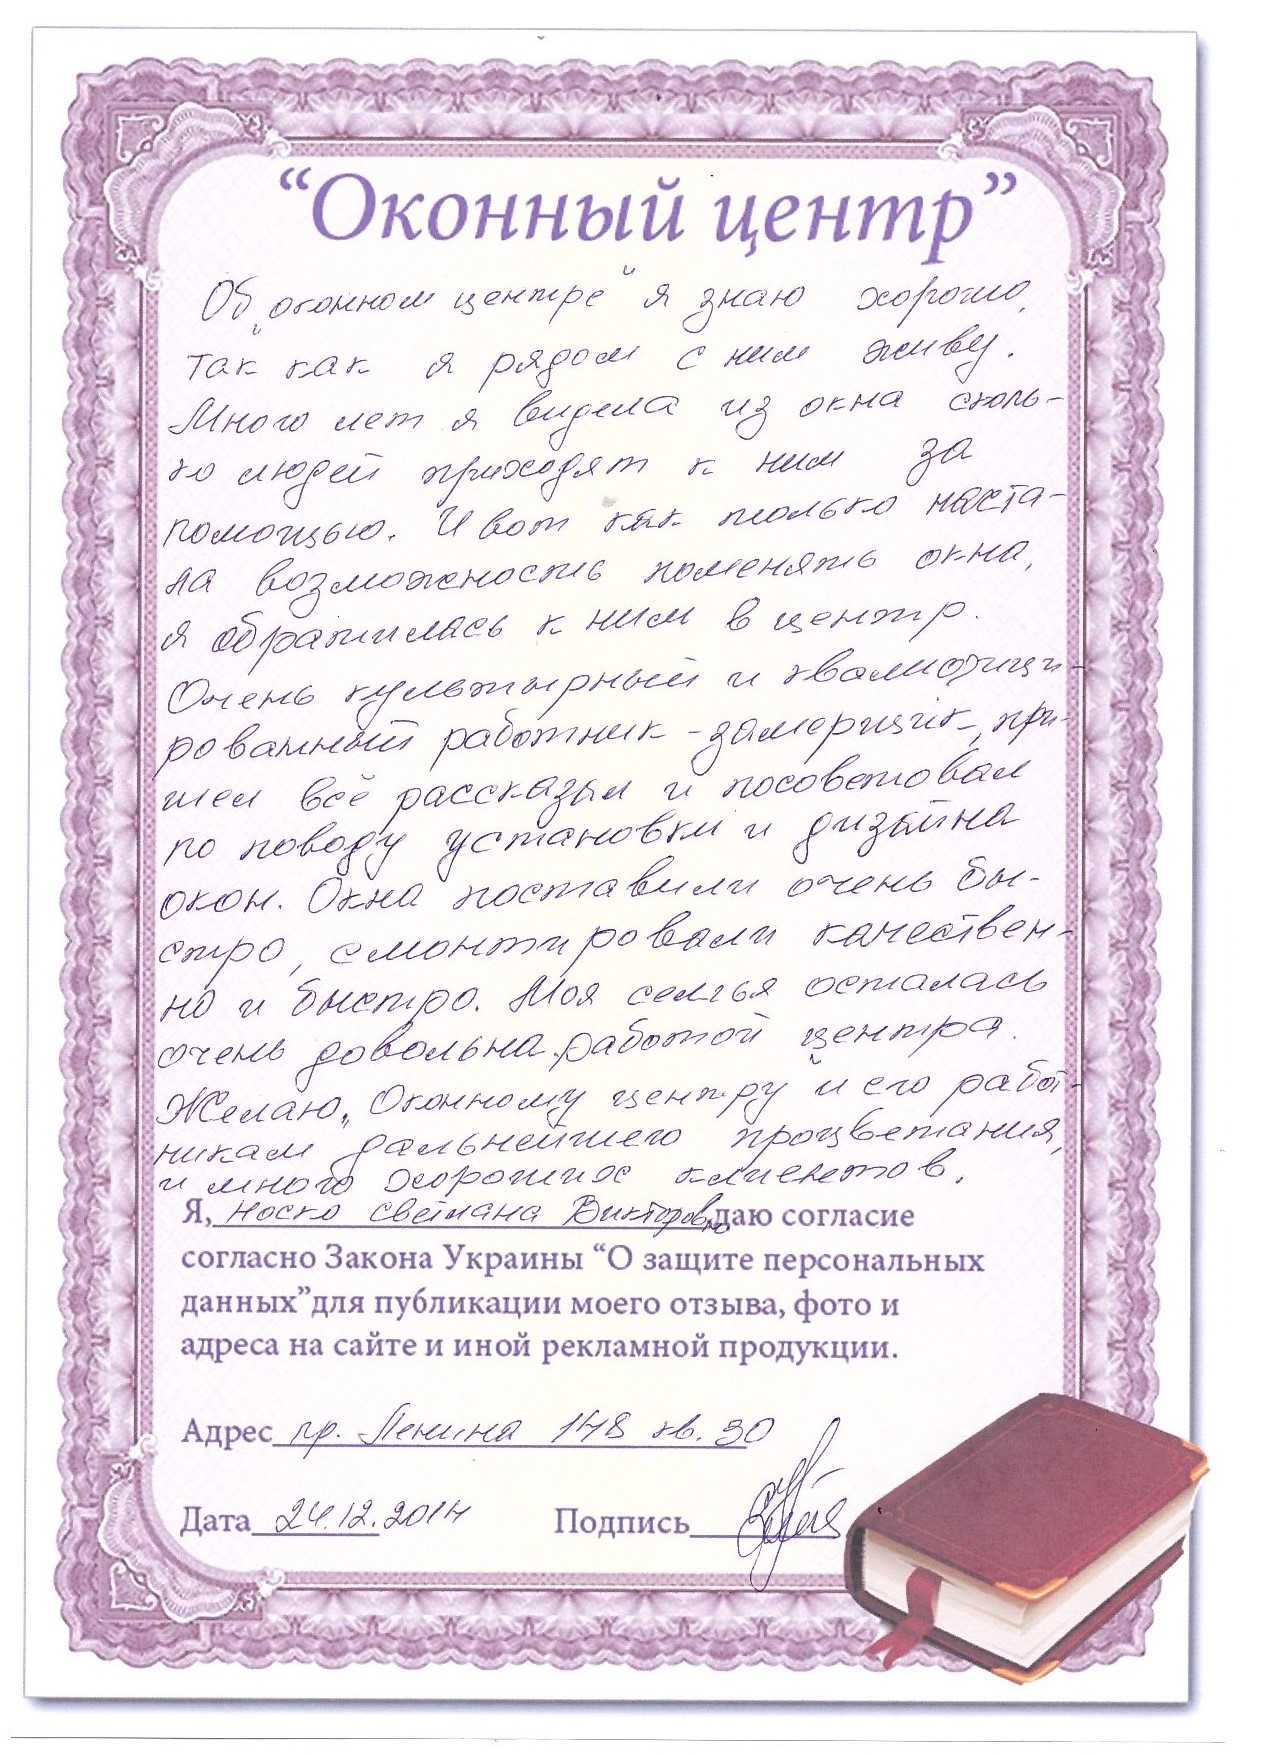 “Оконный центр”
Об „оконном центре“ я знаю хорошо,
так как я рядом с ним живу.
Много лет я видела из окна сколь-
ко людей приходят к ним за
помощью. И вот как только наста-
ла возможность поменять окна,
я обратилась к ним в центр.
Очень культырный и квалифици-
рованный работник - замерщик, при-
шел всё рассказыл и посоветовал
по поводу установки и дизайна
окон. Окна поставили очень бы-
стро, смонтировали качествен-
но и быстро. Моя семья осталась
очень довольна работой центра.
Желаю „Оконному центру“ и его работ-
никам дальнейшего процветания,
и много хороших клиентов.
Я, Носко Светлана Викторовно, даю согласие
согласно Закона Украины “О защите персональных
данных”для публикации моего отзыва, фото и
адреса на сайте и иной рекламной продукции.
Адрес пр. Ленина 148 кв. 30
Дата 24.12.2014 Подпись